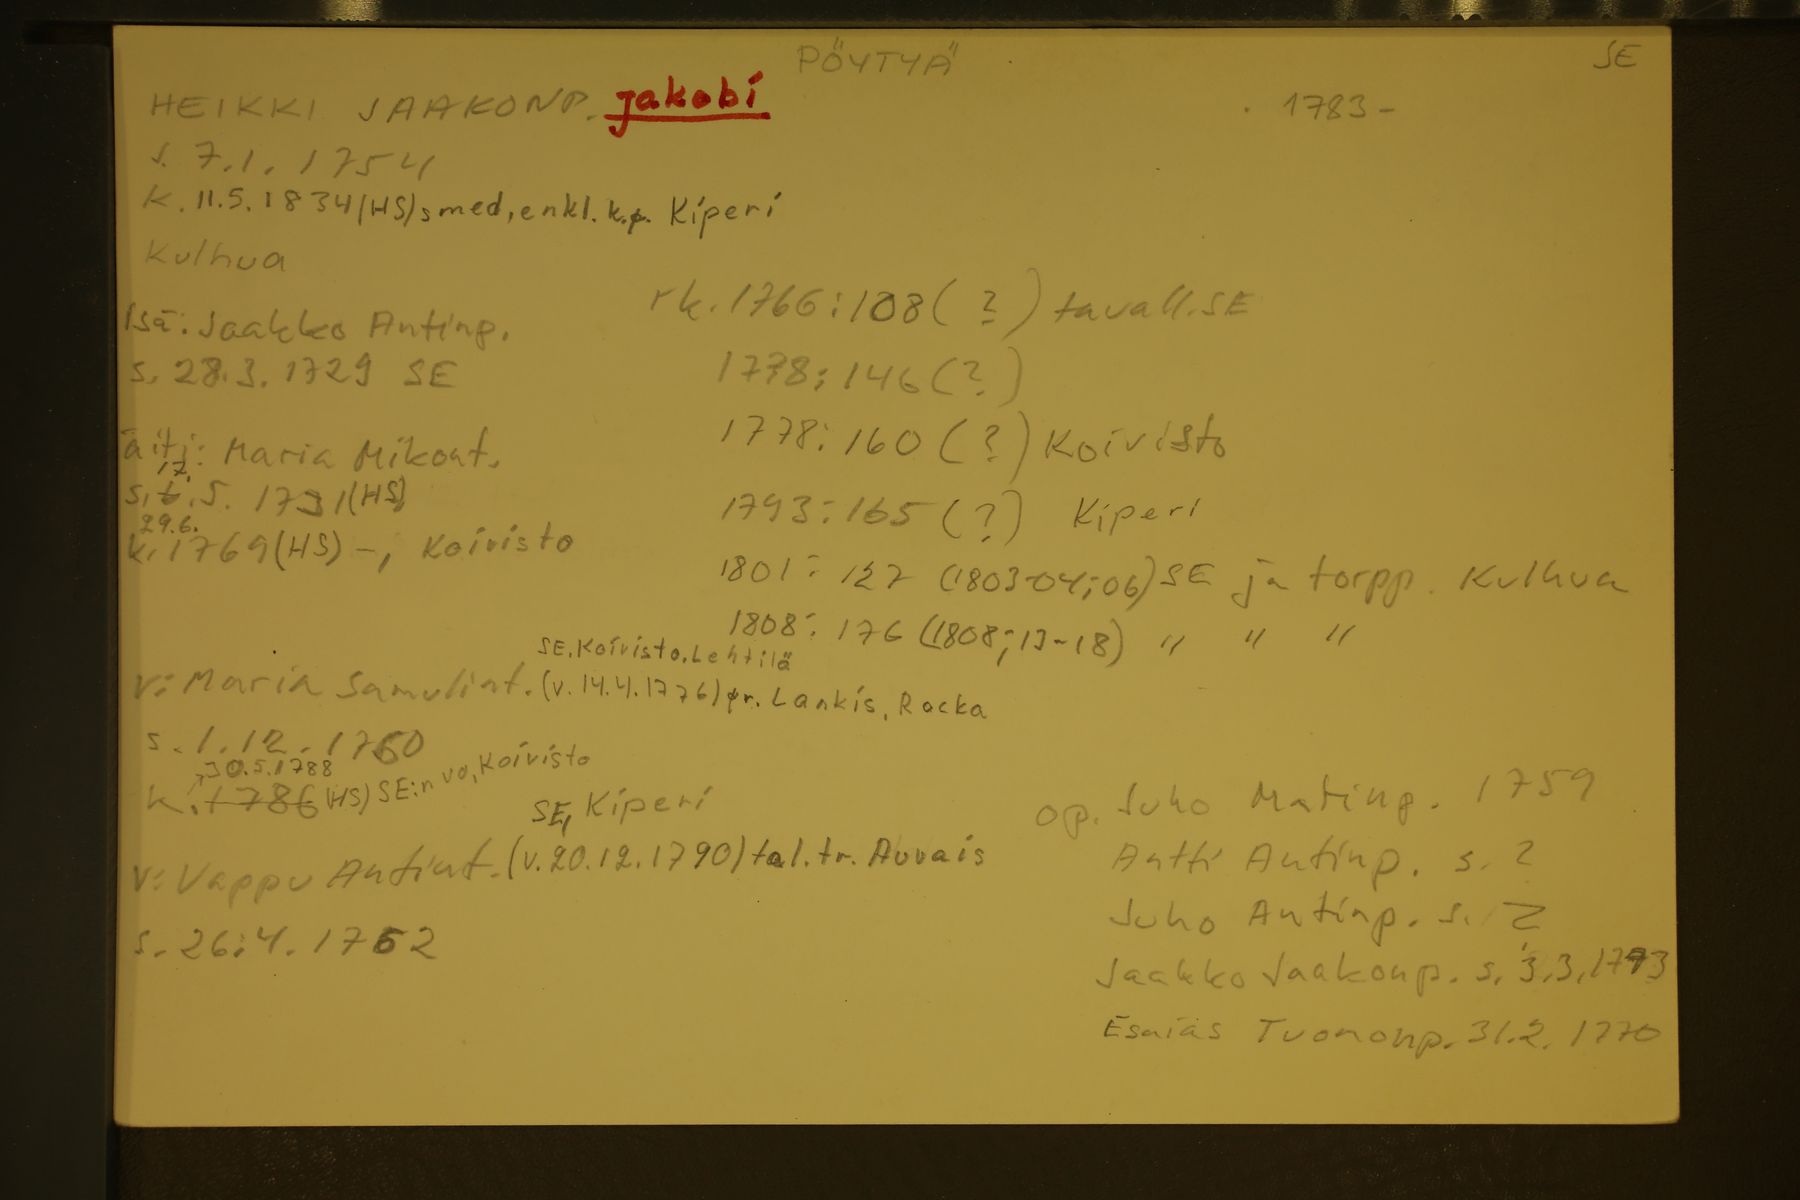 PÖYTYÄ
SE
HEIKKI JAAKONP. jakobi
1783-
s. 7.1. 1754
k. 11.5.1834 (HS) smed, enkl. k.p. Kiperi
Kulhua
Isä: Jaakko Antinp.
s. 28.3. 1729 SE
äiti: Maria Mikont.
17.
s. 6.5. 1731 (HS)
29.6.
k. 1769 (HS) -, Koivisto
rk. 1766:108 (?) tavall. SE
1778:146 (?)
1778:160 (?) Koivisto
1793:165 (?) Kiperi
1801: 127 (1803-04; 06) SE ja torpp. Kulhua
1808: 176 (1808; 13-18) " " "
SE. Koivisto. Lehtilä
v: Maria Samulint. (v. 14.4.1776) pr. Lankis, Racka
s. 1.12. 1760
30.5.1788
k. 1786 (HS) SE:n vo, Koivisto
SE, Kiperi
v: Vappu Antint. (v. 20.12.1790) tal. tr. Auvais
s. 26.4. 1762
op. Juho Matinp. 1759
Antti Antinp. s. ?
Juho Antinp. s.
Jaakko Jaakonp. s. 3.3. 1773
Esaias Tuomonp. 31.2. 1770